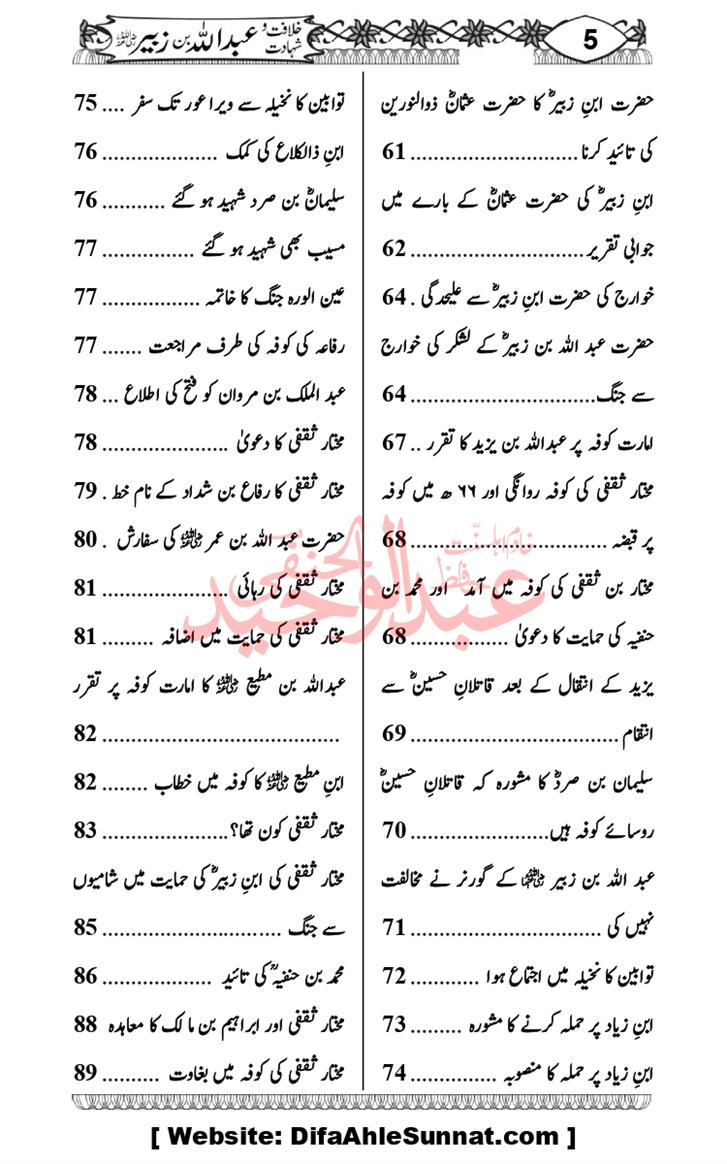 خلافت و شہادت عبداللہ بن زبیر رضی اللہ عنہ
5
حضرت ابنِ زبیرؓ کا حضرت عثمانؓ ذوالنورین
کی تائید کرنا ............................. 61
ابنِ زبیرؓ کی حضرت عثمانؓ کے بارے میں
جوابی تقریر ............................. 62
خوارج کی حضرت ابنِ زبیرؓ سے علیحدگی . 64
حضرت عبد اللہ بن زبیرؓ کے لشکر کی خوارج
سے جنگ ............................. 64
امارت کوفہ پر عبداللہ بن یزید کا تقرر .. 67
مختار ثقفی کی کوفہ روانگی اور ۶۶ ھ میں کوفہ
پر قبضہ ............................. 68
مختار بن ثقفی کی کوفہ میں آمد اور محمد بن
حنفیہ کی حمایت کا دعویٰ ................. 68
یزید کے انتقال کے بعد قاتلانِ حسینؓ سے
انتقام ............................. 69
سلیمان بن صردؓ کا مشورہ کہ قاتلانِ حسینؓ
روسائے کوفہ ہیں ....................... 70
عبد اللہ بن زبیر رضی اللہ عنہما کے گورنر نے مخالفت
نہیں کی ............................. 71
توابین کا نخیلہ میں اجتماع ہوا ............ 72
ابنِ زیاد پر حملہ کرنے کا مشورہ ......... 73
ابنِ زیاد پر حملہ کا منصوبہ .............. 74
توابین کا نخیلہ سے ویراعور تک سفر .... 75
ابنِ ذالکلاع کی کمک .................... 76
سلیمانؓ بن صرد شہید ہو گئے ........... 76
مسیب بھی شہید ہو گئے ................ 77
عین الورہ جنگ کا خاتمہ ................. 77
رفاعہ کی کوفہ کی طرف مراجعت ....... 77
عبد الملک بن مروان کو فتح کی اطلاع ... 78
مختار ثقفی کا دعویٰ ...................... 78
مختار ثقفی کا رفاع بن شداد کے نام خط . 79
حضرت عبد اللہ بن عمر رضی اللہ عنہ کی سفارش . 80
مختار ثقفی کی رہائی ...................... 81
مختار ثقفی کی حمایت میں اضافہ ......... 81
عبداللہ بن مطیع رضی اللہ عنہ کا امارت کوفہ پر تقرر
........................................ 82
ابنِ مطیع رضی اللہ عنہ کا کوفہ میں خطاب ........ 82
مختار ثقفی کون تھا؟ ...................... 83
مختار ثقفی کی ابنِ زبیرؓ کی حمایت میں شامیوں
سے جنگ ............................. 85
محمد بن حنفیہؒ کی تائید ................... 86
مختار ثقفی اور ابراہیم بن مالک کا معاہدہ 88
مختار ثقفی کی کوفہ میں بغاوت .......... 89
خادم اہلسنّت
حافظ عبدالوحید الحنفی
[ Website: DifaAhleSunnat.com ]